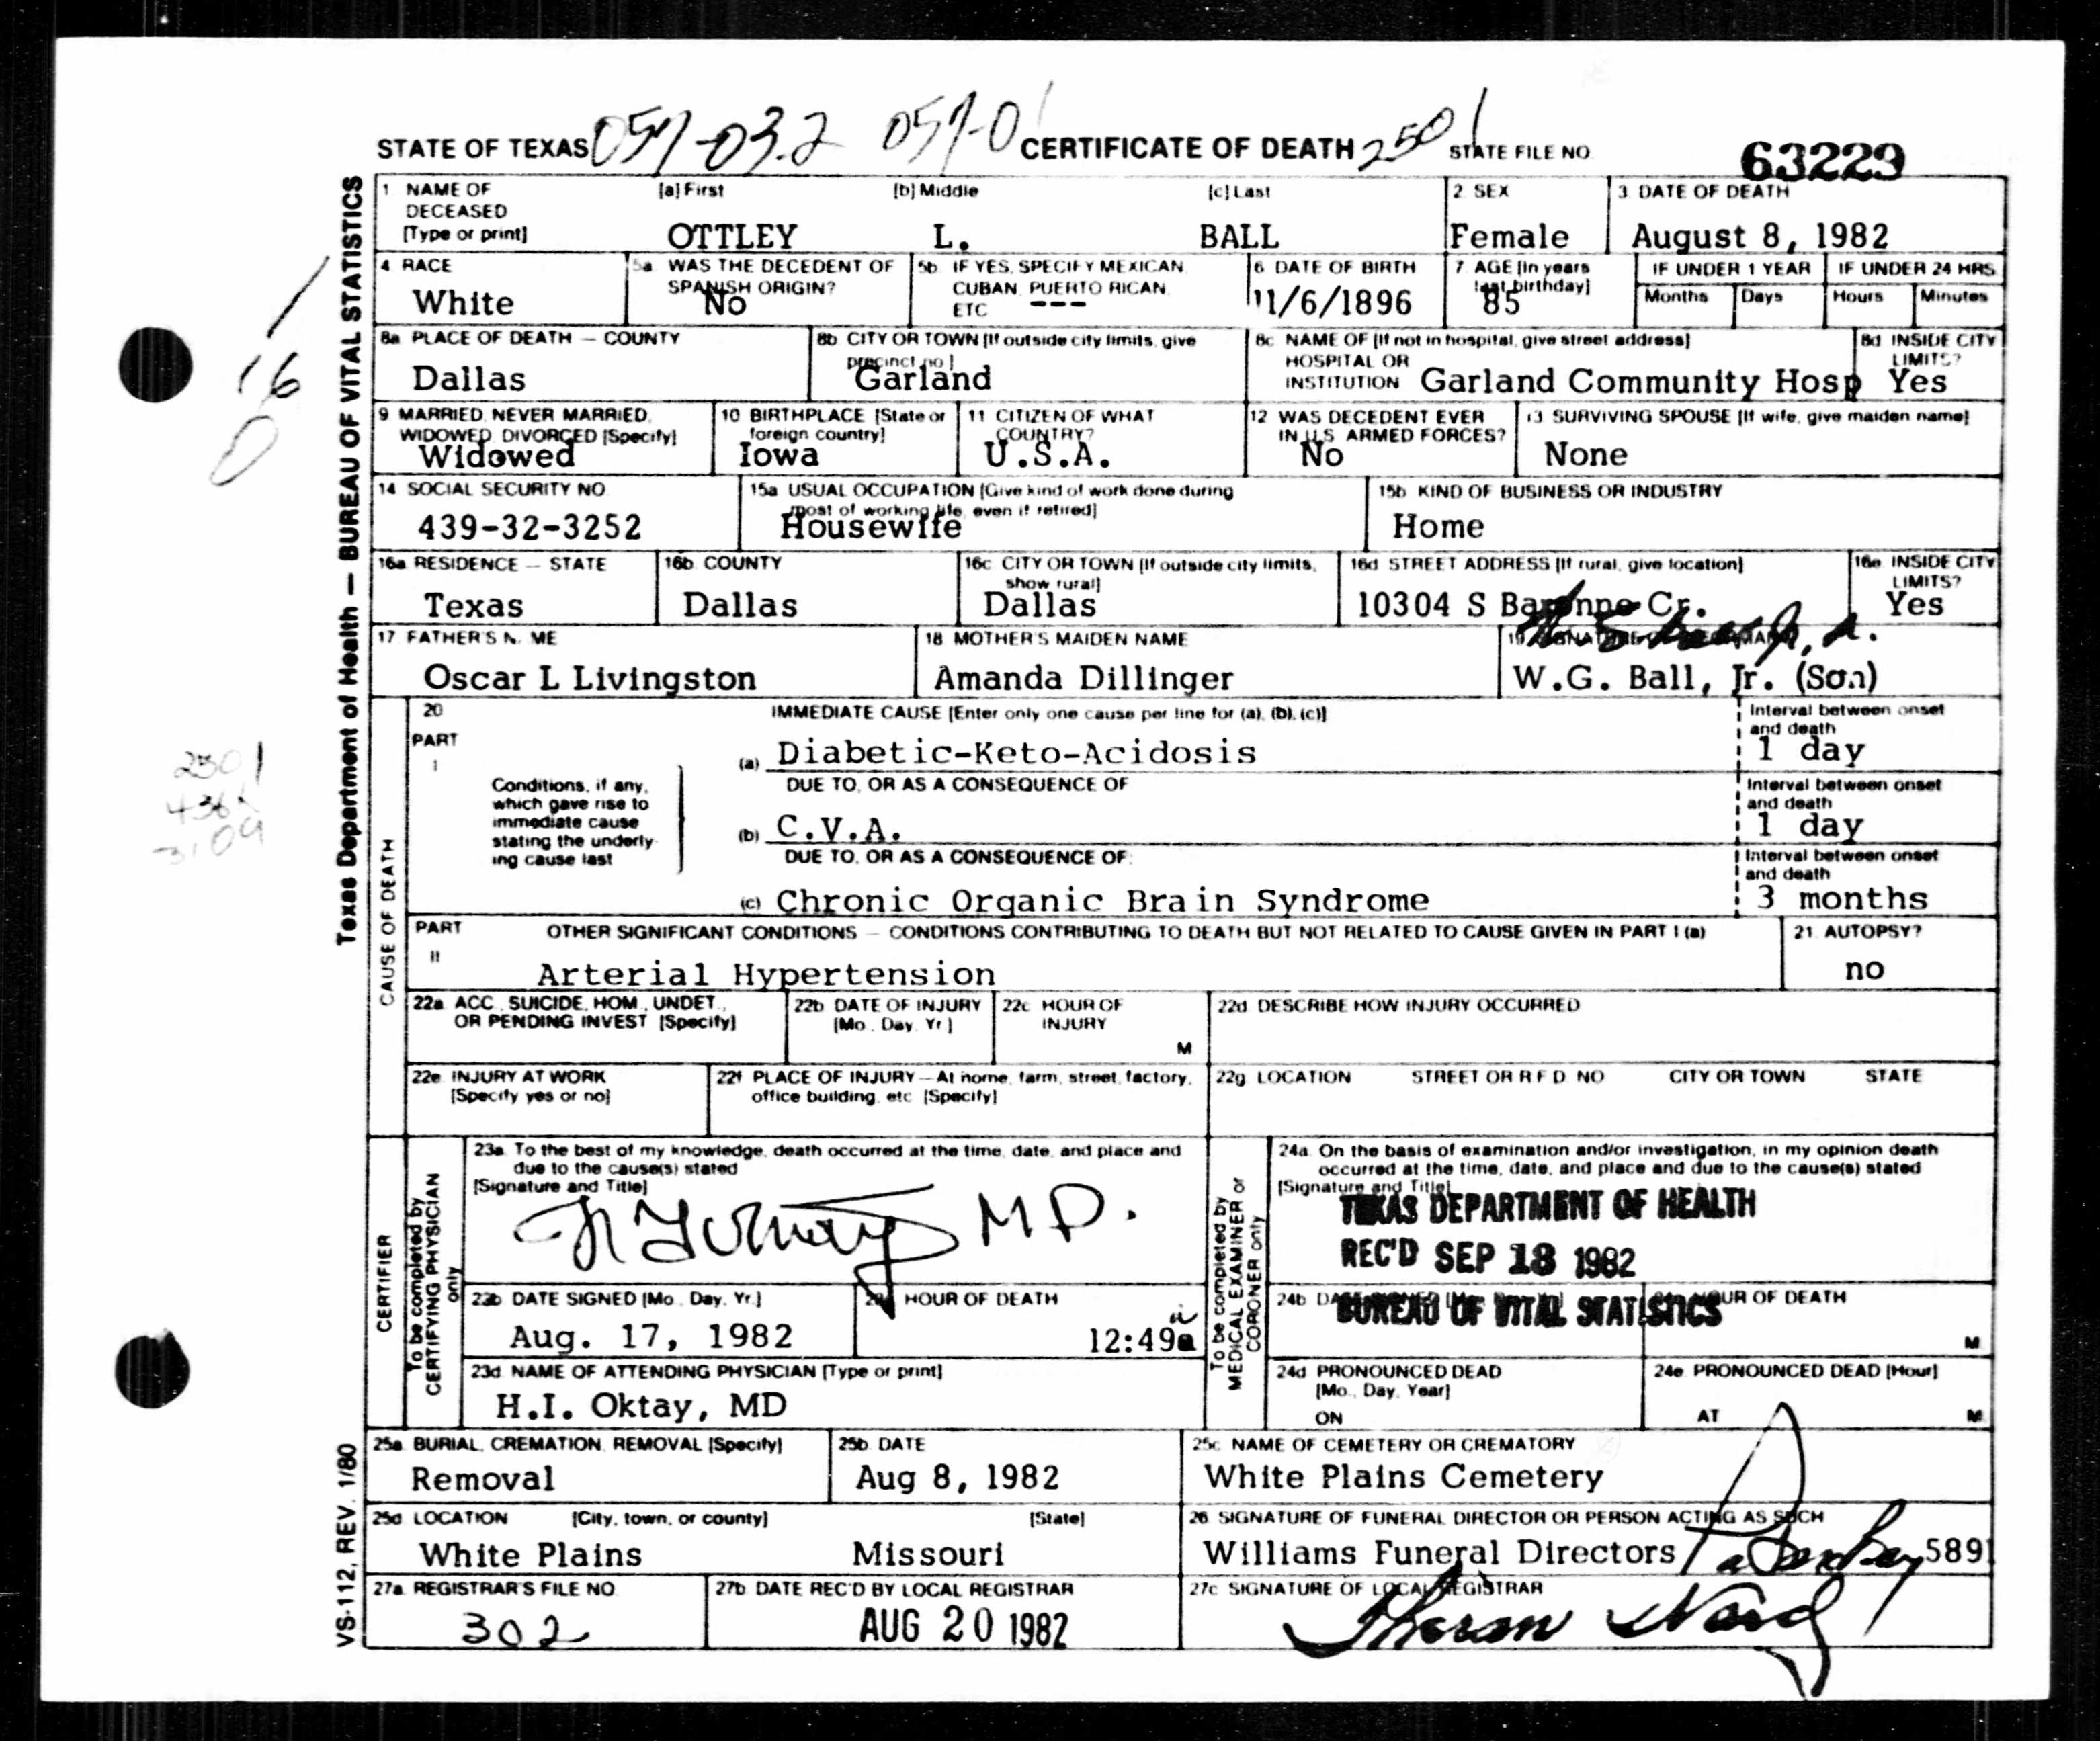 STATE OF TEXAS 059-03.2 059-01 CERTIFICATE OF DEATH 2501 STATE FILE NO. 63229
Texas Department of Health — BUREAU OF VITAL STATISTICS
1 NAME OF DECEASED [Type or print] [a] First [b] Middle [c] Last 2 SEX 3 DATE OF DEATH
OTTLEY L. BALL Female August 8, 1982
4 RACE 5a WAS THE DECEDENT OF SPANISH ORIGIN? 5b IF YES, SPECIFY MEXICAN, CUBAN, PUERTO RICAN, ETC 6 DATE OF BIRTH 7 AGE [In years last birthday] IF UNDER 1 YEAR IF UNDER 24 HRS
Months Days Hours Minutes
White No --- 11/6/1896 85
16
0
8a PLACE OF DEATH — COUNTY 8b CITY OR TOWN [If outside city limits, give precinct no.] 8c NAME OF [If not in hospital, give street address] HOSPITAL OR INSTITUTION 8d INSIDE CITY LIMITS?
Dallas Garland Garland Community Hosp Yes
9 MARRIED, NEVER MARRIED, WIDOWED, DIVORCED [Specify] 10 BIRTHPLACE [State or foreign country] 11 CITIZEN OF WHAT COUNTRY? 12 WAS DECEDENT EVER IN U.S. ARMED FORCES? 13 SURVIVING SPOUSE [If wife, give maiden name]
Widowed Iowa U.S.A. No None
14 SOCIAL SECURITY NO. 15a USUAL OCCUPATION [Give kind of work done during most of working life, even if retired] 15b KIND OF BUSINESS OR INDUSTRY
439-32-3252 Housewife Home
16a RESIDENCE — STATE 16b COUNTY 16c CITY OR TOWN [If outside city limits, show rural] 16d STREET ADDRESS [If rural, give location] 16e INSIDE CITY LIMITS?
Texas Dallas Dallas 10304 S Baronne Cr. Yes
17 FATHER'S NAME 18 MOTHER'S MAIDEN NAME 19 SIGNATURE OF INFORMANT
Oscar L Livingston Amanda Dillinger W.G. Ball, Jr. (Son)
CAUSE OF DEATH
20 IMMEDIATE CAUSE [Enter only one cause per line for (a), (b), (c)]
PART I
(a) Diabetic-Keto-Acidosis Interval between onset and death 1 day
Conditions, if any, which gave rise to immediate cause stating the underlying cause last
DUE TO, OR AS A CONSEQUENCE OF
(b) C.V.A. Interval between onset and death 1 day
DUE TO, OR AS A CONSEQUENCE OF:
(c) Chronic Organic Brain Syndrome Interval between onset and death 3 months
PART II OTHER SIGNIFICANT CONDITIONS — CONDITIONS CONTRIBUTING TO DEATH BUT NOT RELATED TO CAUSE GIVEN IN PART I (a) 21 AUTOPSY?
Arterial Hypertension no
22a ACC., SUICIDE, HOM., UNDET., OR PENDING INVEST. [Specify] 22b DATE OF INJURY [Mo., Day, Yr.] 22c HOUR OF INJURY M 22d DESCRIBE HOW INJURY OCCURRED
22e INJURY AT WORK [Specify yes or no] 22f PLACE OF INJURY — At home, farm, street, factory, office building, etc. [Specify] 22g LOCATION STREET OR R.F.D. NO. CITY OR TOWN STATE
CERTIFIER
To be completed by CERTIFYING PHYSICIAN only
23a To the best of my knowledge, death occurred at the time, date, and place and due to the cause(s) stated
[Signature and Title]
M.D.
To be completed by MEDICAL EXAMINER or CORONER only
24a On the basis of examination and/or investigation, in my opinion death occurred at the time, date, and place and due to the cause(s) stated
[Signature and Title]
TEXAS DEPARTMENT OF HEALTH
REC'D SEP 18 1982
BUREAU OF VITAL STATISTICS
23b DATE SIGNED [Mo., Day, Yr.] HOUR OF DEATH 24b HOUR OF DEATH M
Aug. 17, 1982 12:49a
23d NAME OF ATTENDING PHYSICIAN [Type or print] 24d PRONOUNCED DEAD [Mo., Day, Year] ON 24e PRONOUNCED DEAD [Hour] AT M
H.I. Oktay, MD
25a BURIAL, CREMATION, REMOVAL [Specify] 25b DATE 25c NAME OF CEMETERY OR CREMATORY
Removal Aug 8, 1982 White Plains Cemetery
25d LOCATION [City, town, or county] [State] 26 SIGNATURE OF FUNERAL DIRECTOR OR PERSON ACTING AS SUCH
White Plains Missouri Williams Funeral Directors 5891
27a REGISTRAR'S FILE NO. 27b DATE REC'D BY LOCAL REGISTRAR 27c SIGNATURE OF LOCAL REGISTRAR
302 AUG 20 1982 Sharon Ward
VS-112, REV. 1/80